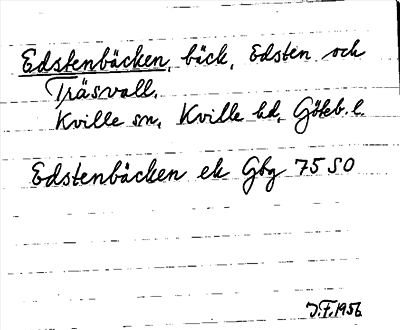 Edstenbäcken, bäck, Edsten och
Träsvall.
Kville sn, Kville hd, Göteb. l.
Edstenbäcken ek Gbg 75 SO
J.F. 1956